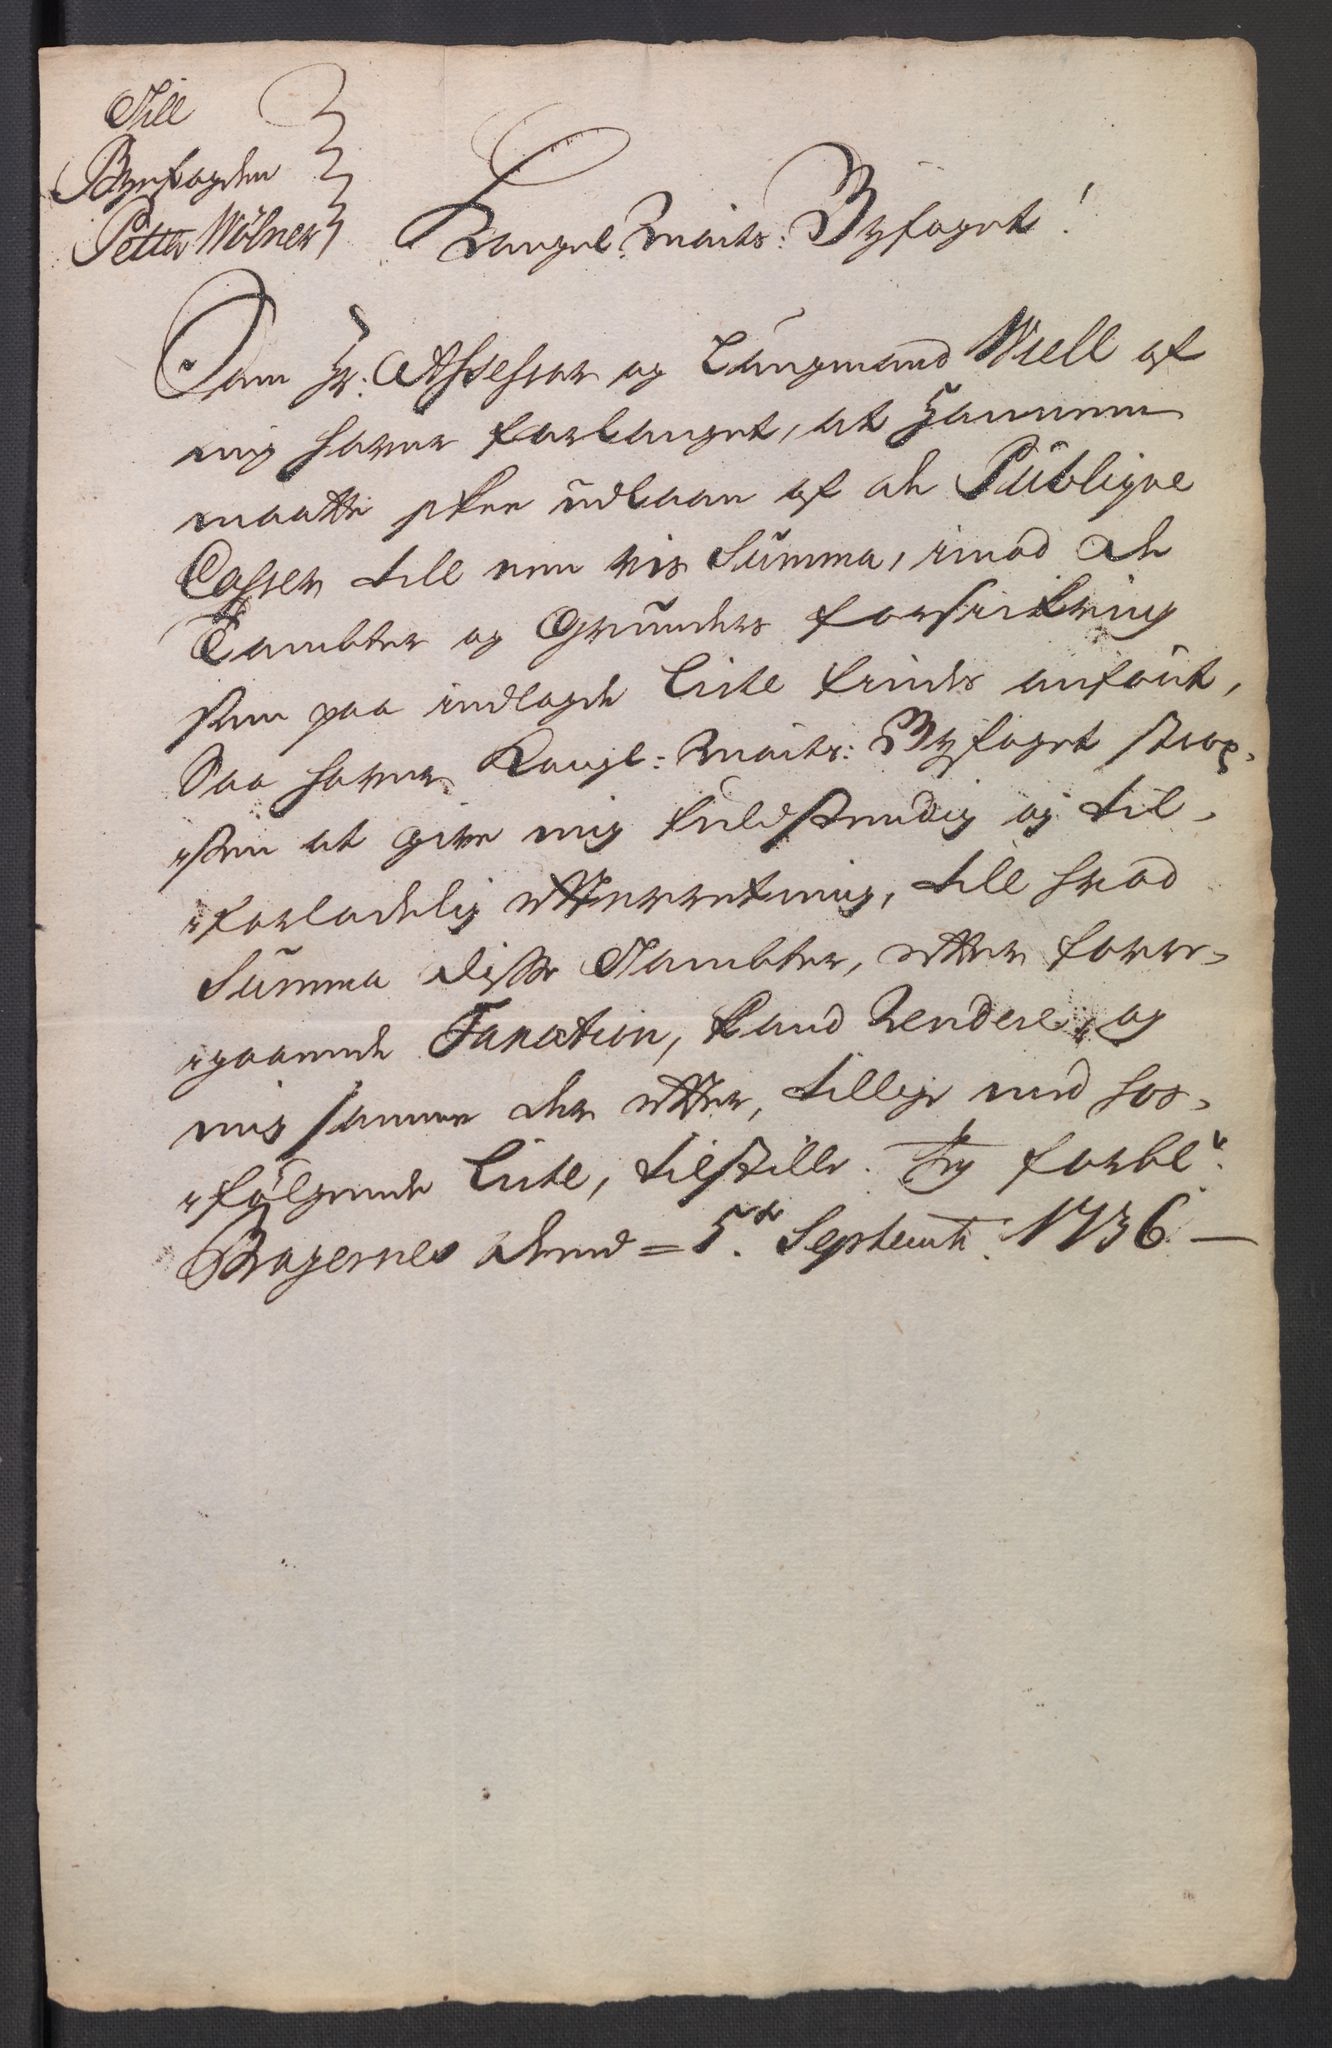 Till
Byefogden
Petter Wölner
Kongel. Maits: Byfoget!
Som Hr: Assessor og Laugmand Weell af
mig haver forlanget, at Hannem
maatte skee udlaan af de Publique
Casser till een vis Summa, imod de
Tombter og Grunders forsickring
som paa indlagde Liste findes anfört,
Saa haver Kongl: Maits: Byfoget strax,
sten at give mig fuldstendig og til,
forladelig efterretning, till hvad
Summa disse Tombter, efter fore,
gaaende Taxation, kand Rendere, og
mig samme der efter, tillige med hos,
fölgende Liste, tilstille. Jeg forbl:
Bragernes dend = 5.te Septemb: 1736 —